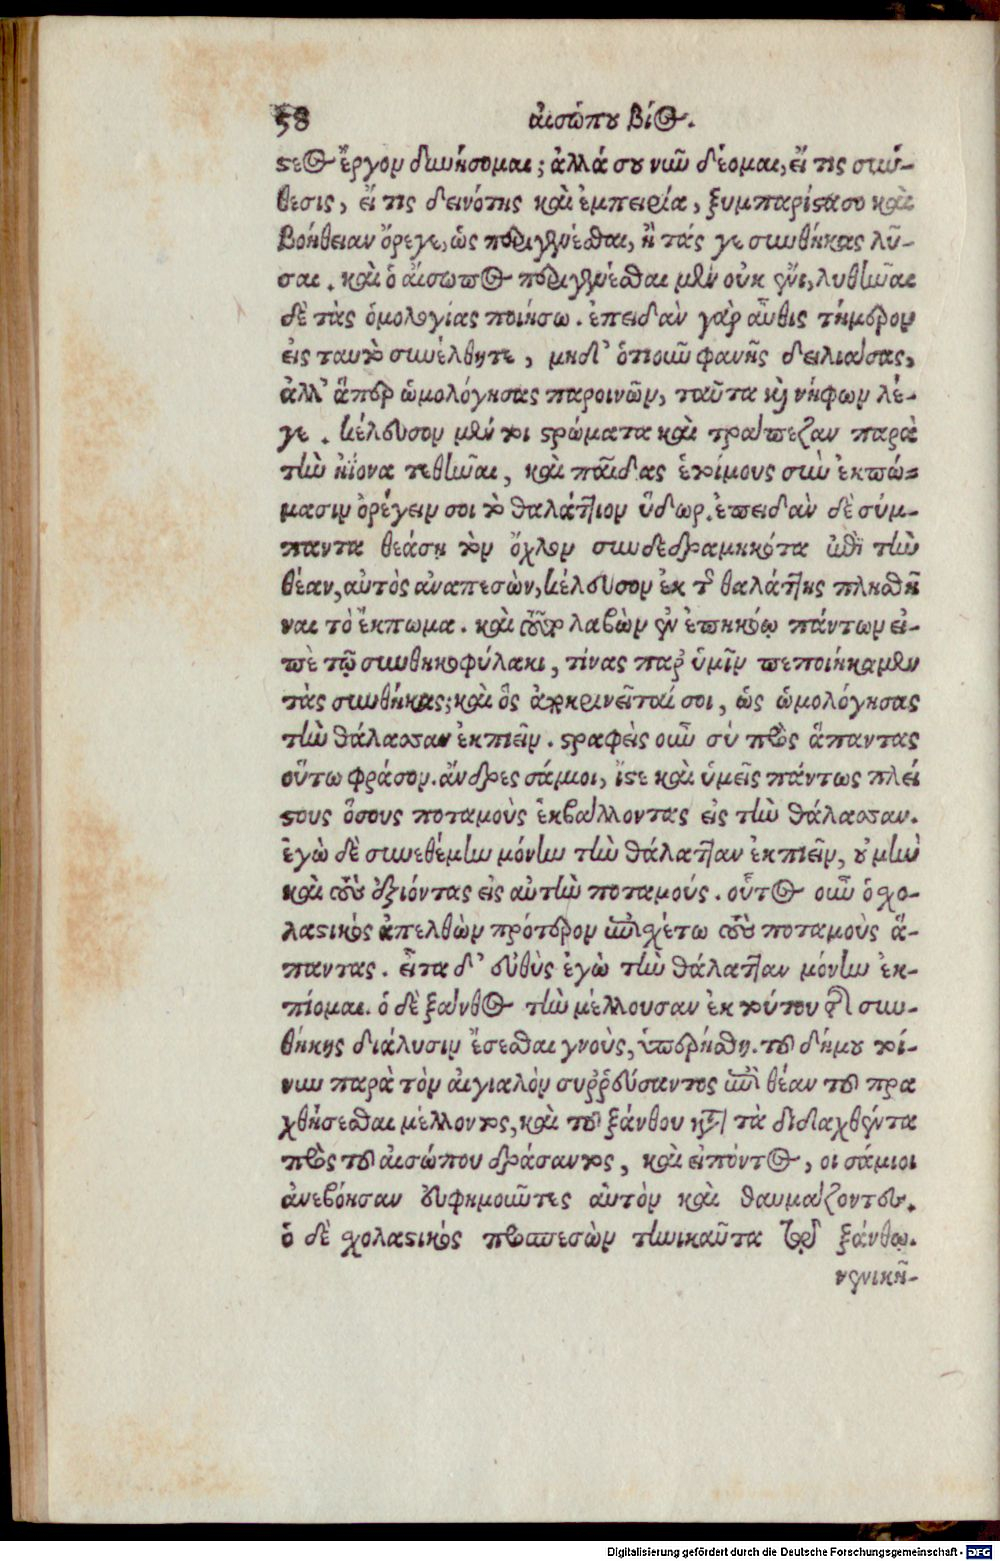 58 αἰσώπου βίος.
στος ἔργον δυνήσομαι; ἀλλά σου νῦν δέομαι, εἴ τις σύν-
θεσις, εἴ τις δεινότης καὶ ἐμπειρία, ξυμπαρίστασο καὶ
βοήθειαν ὄρεγε, ὡς περιγενέσθαι, ἢ τάς γε συνθήκας λῦ-
σαι. καὶ ὁ αἴσωπος περιγενέσθαι μὲν οὐκ ἔνι, λυθῆναι
δὲ τὰς ὁμολογίας ποιήσω. ἐπειδὰν γὰρ αὖθις τήμερον
εἰς ταυτὸ συνέλθητε, μηδ' ὁτιοῦν φανῇς δειλιάσας,
ἀλλ' ἅπερ ὡμολόγησας παροινῶν, ταῦτα καὶ νήφων λέ-
γε. κέλευσον μὲν τοι στρώματα καὶ τράπεζαν παρὰ
τὴν ἠϊόνα τεθῆναι, καὶ παῖδας ἑτοίμους σὺν ἐκπώ-
μασιν ὀρέγειν σοι τὸ θαλάττιον ὕδωρ. ἐπειδὰν δὲ σύμ-
παντα θεάσῃ τὸν ὄχλον συνδεδραμηκότα ἐπὶ τὴν
θέαν, αὐτὸς ἀναπεσὼν, κέλευσον ἐκ τῆς θαλάττης πλησθῆ
ναι τὸ ἔκπωμα. καὶ τοῦτο λαβὼν ἐν ἐπηκόῳ πάντων εἰ-
πὲ τῷ συνθηκοφύλακι, τίνας παρ' ὑμῖν πεποιήκαμεν
τὰς συνθήκας; καὶ ὃς ἀποκρινεῖταί σοι, ὡς ὡμολόγησας
τὴν θάλασσαν ἐκπιεῖν. στραφεὶς οὖν σὺ πρὸς ἅπαντας
οὕτω φράσον. ἄνδρες σάμιοι, ἴστε καὶ ὑμεῖς πάντως πλεί
στους ὅσους ποταμοὺς ἐκβάλλοντας εἰς τὴν θάλασσαν.
ἐγὼ δὲ συνεθέμην μόνην τὴν θάλατταν ἐκπιεῖν, οὐ μὴν
καὶ τοὺς ἐξιόντας εἰς αὐτὴν ποταμούς. οὗτος οὖν ὁ σχο-
λαστικός ἀπελθὼν πρότερον ἐπισχέτω τοὺς ποταμοὺς ἅ-
παντας. εἶτα δ' εὐθὺς ἐγὼ τὴν θάλατταν μόνην ἐκ-
πίομαι. ὁ δὲ ξάνθος τὴν μέλλουσαν ἐκ τούτου τῆς συν-
θήκης διάλυσιν ἔσεσθαι γνοὺς, ὑπερήσθη. τοῦ δήμου τοί-
νυν παρὰ τὸν αἰγιαλὸν συῤῥεύσαντος ἐπὶ θέαν τοῦ πρα
χθήσεσθαι μέλλοντος, καὶ τοῦ ξάνθου κατὰ τὰ διδαχθέντα
πρὸς τοῦ αἰσώπου δράσαντος, καὶ εἰπόντος, οι σάμιοι
ἀνεβόησαν εὐφημοῦντες αὐτὸν καὶ θαυμάζοντες.
ὁ δὲ σχολαστικός προσπεσὼν τηνικαῦτα τῷ ξάνθῳ.
νενικῆ-
Digitalisierung gefördert durch die Deutsche Forschungsgemeinschaft - DFG